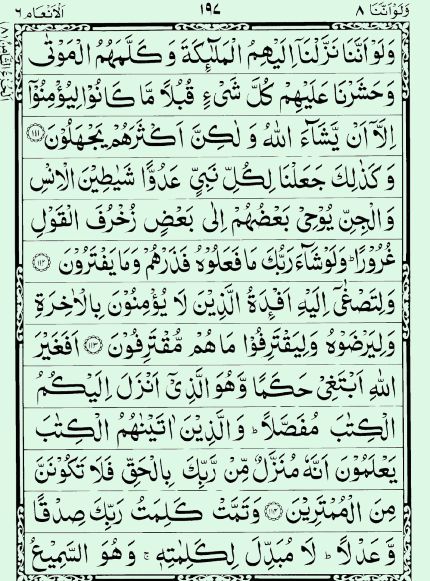 وَلَوْاَنَّنَا ٨ ١٩٧ اَلْاَنْعَام ٦
وَلَوْ اَنَّنَا نَزَّلْنَاۤ اِلَيْهِمُ الْمَلٰٓئِكَةَ وَكَلَّمَهُمُ الْمَوْتٰى
وَحَشَرْنَا عَلَيْهِمْ كُلَّ شَىْءٍ قُبُلًا مَّا كَانُوْا لِيُؤْمِنُوْۤا
اِلَّاۤ اَنْ يَّشَآءَ اللّٰهُ وَلٰكِنَّ اَكْثَرَهُمْ يَجْهَلُوْنَ ۝١١١
وَكَذٰلِكَ جَعَلْنَا لِكُلِّ نَبِىٍّ عَدُوًّا شَيٰطِيْنَ الْاِنْسِ
وَالْجِنِّ يُوْحِىْ بَعْضُهُمْ اِلٰى بَعْضٍ زُخْرُفَ الْقَوْلِ
غُرُوْرًا ؕ وَلَوْ شَآءَ رَبُّكَ مَا فَعَلُوْهُ فَذَرْهُمْ وَمَا يَفْتَرُوْنَ ۝١١٢
وَلِتَصْغٰۤى اِلَيْهِ اَفْـِٕدَةُ الَّذِيْنَ لَا يُؤْمِنُوْنَ بِالْاٰخِرَةِ
وَلِيَرْضَوْهُ وَلِيَقْتَرِفُوْا مَا هُمْ مُّقْتَرِفُوْنَ ۝١١٣ اَفَغَيْرَ
اللّٰهِ اَبْتَغِىْ حَكَمًا وَّهُوَ الَّذِىْۤ اَنْزَلَ اِلَيْكُمُ
الْكِتٰبَ مُفَصَّلًا ؕ وَالَّذِيْنَ اٰتَيْنٰهُمُ الْكِتٰبَ
يَعْلَمُوْنَ اَنَّهٗ مُنَزَّلٌ مِّنْ رَّبِّكَ بِالْحَقِّ فَلَا تَكُوْنَنَّ
مِنَ الْمُمْتَرِيْنَ ۝١١٤ وَتَمَّتْ كَلِمَتُ رَبِّكَ صِدْقًا
وَّعَدْلًا ؕ لَا مُبَدِّلَ لِكَلِمٰتِهٖ ۚ وَهُوَ السَّمِيْعُ